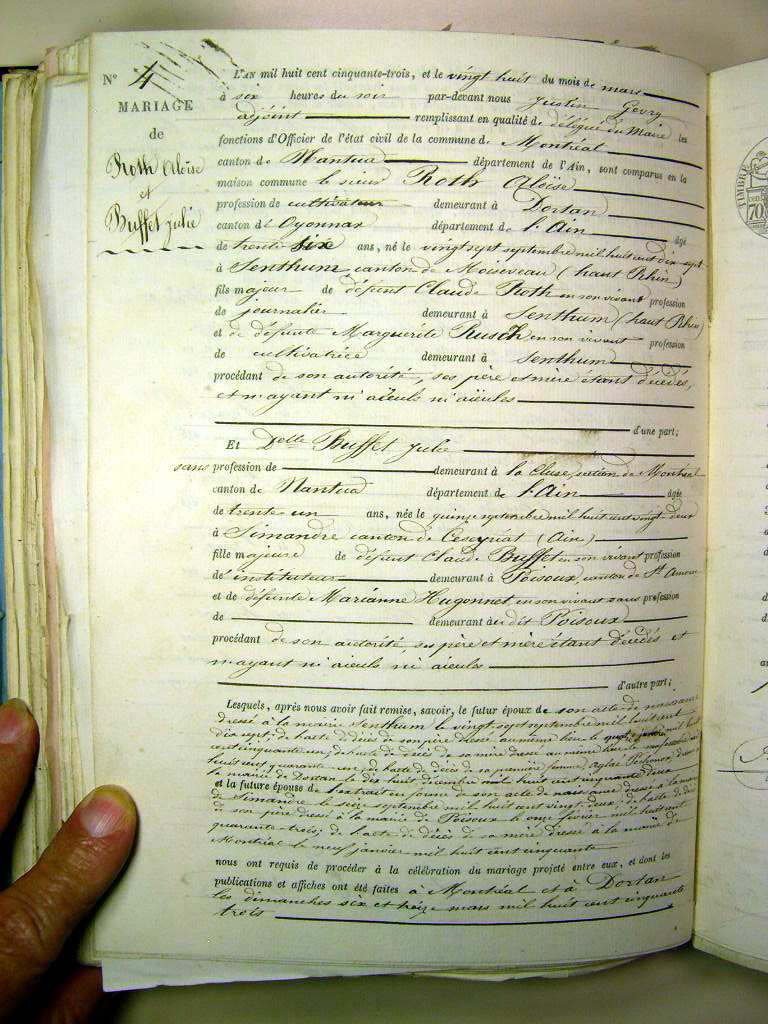 N° 4
MARIAGE
de
Roth Aloïse
et
Buffet Julie
L'AN mil huit cent cinquante-trois, et le vingt huit du mois de mars
à six heures du soir par-devant nous Justin Gevry
adjoint remplissant en qualité de délégué du Maire les
fonctions d'Officier de l'état civil de la commune de Montréal
canton de Nantua département de l'Ain, sont comparus en la
maison commune le sieur Roth Aloïse
profession de cultivateur demeurant à Dortan
canton d'Oyonnax département de l'Ain âgé
de trente six ans, né le vingt sept septembre mil huit cent dix sept
à Senthum canton de (haut Rhin)
fils majeur de défunt Claude Roth en son vivant profession
de journalier demeurant à Senthum (haut Rhin)
et de défunte Marguerite Rusch en son vivant profession
de cultivatrice demeurant à Senthum
procédant de son autorité, ses père et mère étant décédés,
et n'ayant ni aïeuls ni aïeules
d'une part;
Et Delle Buffet Julie
sans profession de demeurant à la Cluse, section de Montréal
canton de Nantua département de l'Ain âgée
de trente un ans, née le quinze septembre mil huit cent vingt-deux
à Simandre canton de Ceseyriat (Ain)
fille majeure de défunt Claude Buffet en son vivant profession
de instituteur demeurant à Poisoux, canton de St Amour
et de défunte Marianne Hugonnet, en son vivant sans profession
de demeurant au dit Poisoux
procédant de son autorité, ses père et mère étant décédés et
n'ayant ni aïeuls ni aïeules
d'autre part;
Lesquels, après nous avoir fait remise, savoir, le futur époux de son acte de naissance
dressé à la mairie Senthum le vingt sept septembre mil huit cent
dix sept; de l'acte de décès de son père dressé au même lieu le mil huit
cent cinquante un; de l'acte de décès de sa mère dressé au même lieu le
huit cent quarante un; de l'acte de décès de sa première femme, Aglaé dressé à
la mairie de Dortan le dix huit décembre mil huit cent cinquante deux
et la future épouse de l'extrait en forme de son acte de naissance dressé à la mairie
de Simandre le seize septembre mil huit cent vingt deux; de l'acte de décès
de son père dressé à la mairie de Poisoux le onze février mil huit cent
quarante trois; de l'acte de décès de sa mère dressé à la mairie de
Montréal le neuf janvier mil huit cent cinquante
nous ont requis de procéder à la célébration du mariage projeté entre eux, et dont les
publications et affiches ont été faites à Montréal et à Dortan
les dimanches six et treize mars mil huit cent cinquante
trois
TIMBRE
70